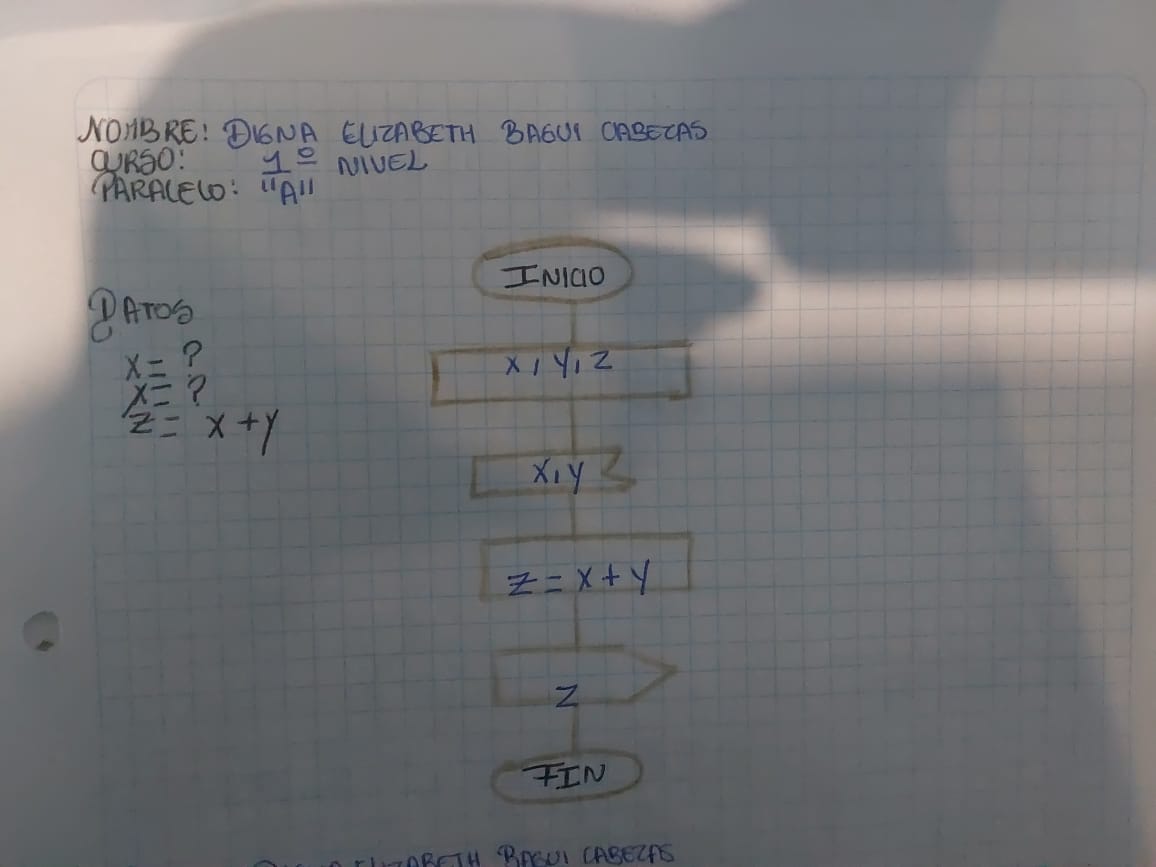 NOMBRE: DIGNA ELIZABETH BAGUI CABEZAS
CURSO: 1º NIVEL
PARALELO: "A"
DATOS
x = ?
x = ?
z = x + y
INICIO
x, y, z
x, y
z = x + y
z
FIN
DIGNA ELIZABETH BAGUI CABEZAS